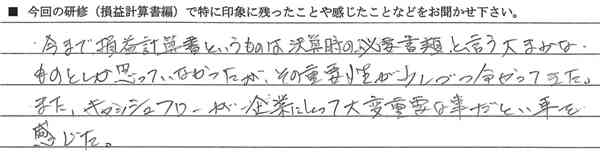 ■ 今回の研修（損益計算書編）で特に印象に残ったことや感じたことなどをお聞かせ下さい。
今まで損益計算書というものは決算時の必要書類と言う大まかな
ものとしか思っていなかったが、その重要性が少しづつ分かってきた。
また、キャッシュフローが企業にとって大変重要な事だという事を
感じた。